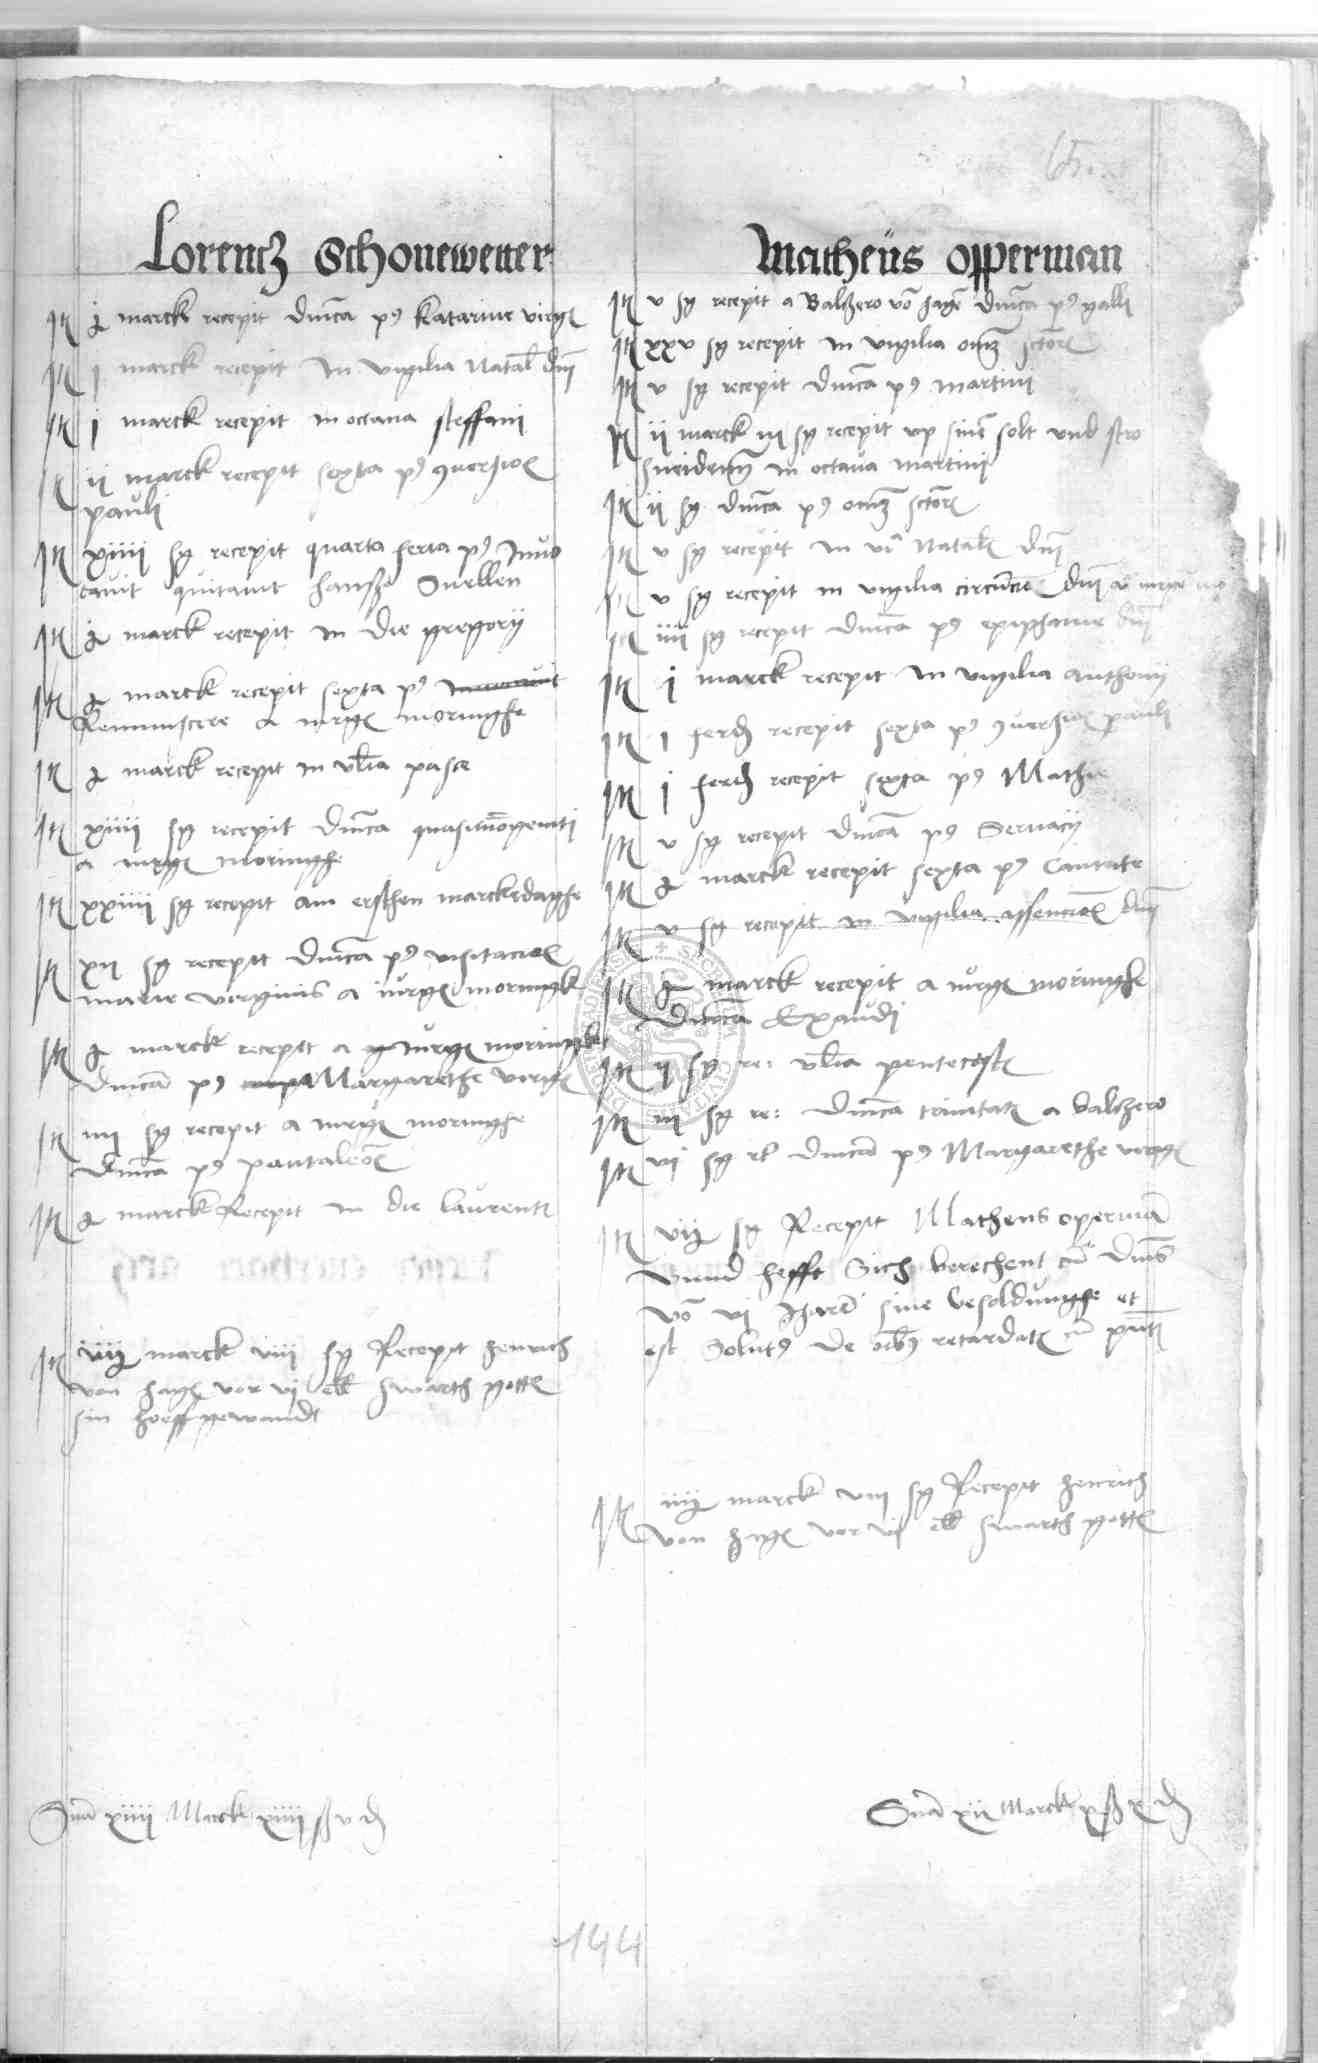 65.
Lorentz Schonewetter
It ½ marck recepit dnica p9 Katarine virg
It j marck recepit in vigilia Natal dni
It j marck recepit in octava steffani
It ij marck recepit sexta p9 9versio
pauli
It xiiij sg recepit quarta feria p9 Invo
cavit quitavit hansß Snellen
It ½ marck recepit in die gregory
It ½ marck recepit sexta p9
Reminiscere a iurg moringhe
It ½ marck recepit in vlia pasce
It xiiij sg recepit dnica quasimogeniti
a iurg moringhe
It xxiiij sg recepit am ersthen marckedaghe
It xij sg recepit dnica p9 visitacio
marie virginis a iurg moringk
It ½ marck recepit a iurg moringk
dnica p9 Margarethe virg
It iiij sg recepit a iurg moringhe
dnica p9 pantaleo
It ½ marck Recepit in die laurenti
It marck viij sg Recepit henrich
von hag vor vj ell swarth gott
sin hoeffgewandt
Sua xiiij Marck xiiij ß v d
Matheus opperman
It v sg recepit a Balzero vo hage dnica p9 galli
It xxv sg recepit in vigilia omm sctor
It v sg recepit dnica p9 martini
It ij marck iij sg recepit vp sine solt vnd stro
sneiden in octava martini
It ij sg dnica p9 omm sctor
It v sg recepit in vi Natal dni
It v sg recepit in vigilia circucis dni a iurge
It iiij sg recepit dnica p9 epiphanie dni
It j marck recepit in vigilia anthony
It j ferd recepit sexta p9 9versio pauli
It j ferd recepit sexta p9 Mathie
It v sg recepit dnica p9 Servacij
It ½ marck recepit sexta p9 Cantate
It v sg recepit in vigilia assencio dni
It ½ marck recepit a iurg moringhe
dnica Exaudi
It ij sg re: vlia pentecost
It iij sg re: dnica trinitat a balthzero
It vj sg re dnica p9 Margarethe virg
It sg Recepit Matheus operma
vnnd hefft Sich berechent cu dnis
vo vj Jhare sine besoldunghe et
est Solut9 de oib9 retardat cu pnt
It marck viij sg Recepit henrich
von hag vor vj ell swarth gott
Sua xij Marck x ß x d
144